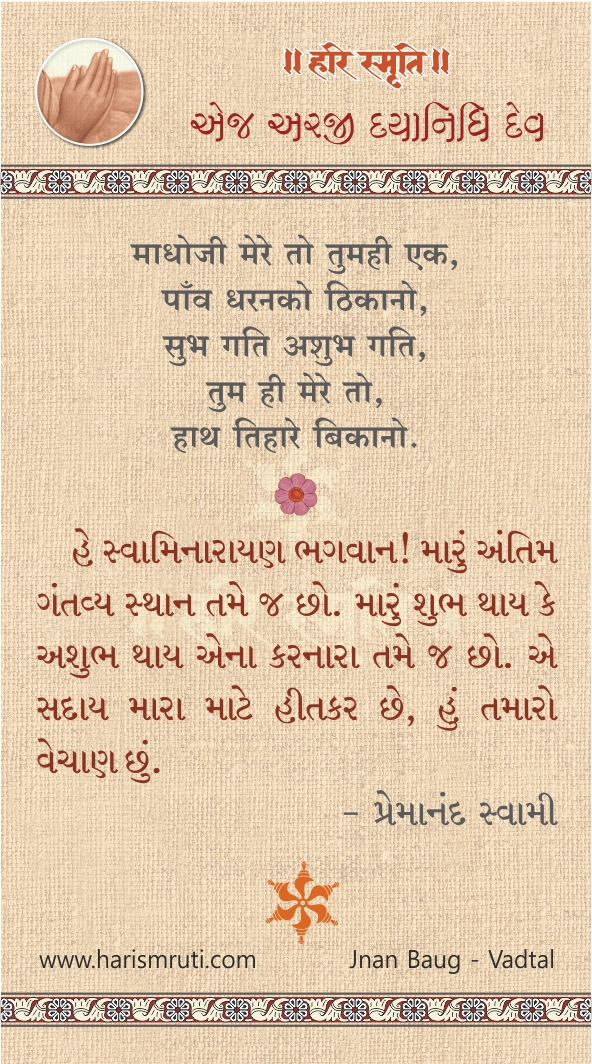 ॥ हरि स्मृति ॥
એજ અરજી દયાનિધિ દેવ
माधोजी मेरे तो तुमही एक,
पाँव धरनको ठिकानो,
सुभ गति अशुभ गति,
तुम ही मेरे तो,
हाथ तिहारे बिकानो.
હે સ્વામિનારાયણ ભગવાન! મારું અંતિમ
ગંતવ્ય સ્થાન તમે જ છો. મારું શુભ થાય કે
અશુભ થાય એના કરનારા તમે જ છો. એ
સદાય મારા માટે હીતકર છે, હું તમારો
વેચાણ છું.
– પ્રેમાનંદ સ્વામી
www.harismruti.com
Jnan Baug - Vadtal